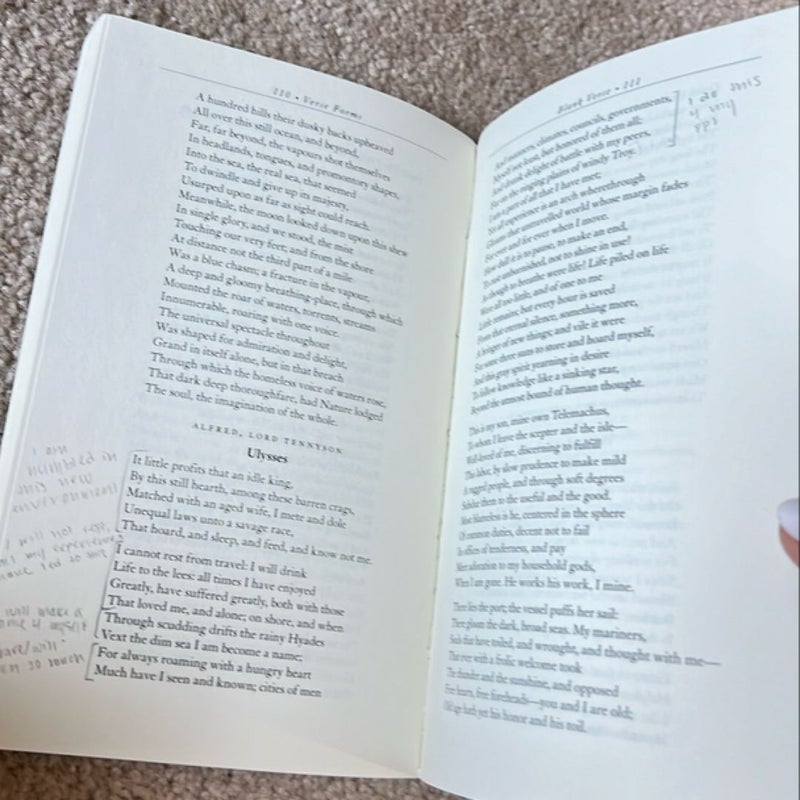 110 • Verse Forms
A hundred hills their dusky backs upheaved
All over this still ocean, and beyond,
Far, far beyond, the vapours shot themselves
In headlands, tongues, and promontory shapes,
Into the sea, the real sea, that seemed
To dwindle and give up its majesty,
Usurped upon as far as sight could reach.
Meanwhile, the moon looked down upon this shew
In single glory, and we stood, the mist
Touching our very feet; and from the shore
At distance not the third part of a mile
Was a blue chasm; a fracture in the vapour,
A deep and gloomy breathing-place, through which
Mounted the roar of waters, torrents, streams
Innumerable, roaring with one voice.
The universal spectacle throughout
Was shaped for admiration and delight,
Grand in itself alone, but in that breach
Through which the homeless voice of waters rose,
That dark deep thoroughfare, had Nature lodged
The soul, the imagination of the whole.
ALFRED, LORD TENNYSON
Ulysses
It little profits that an idle king,
By this still hearth, among these barren crags,
Matched with an aged wife, I mete and dole
Unequal laws unto a savage race,
That hoard, and sleep, and feed, and know not me.
I cannot rest from travel: I will drink
Life to the lees: all times I have enjoyed
Greatly, have suffered greatly, both with those
That loved me, and alone; on shore, and when
Through scudding drifts the rainy Hyades
Vext the dim sea I am become a name;
For always roaming with a hungry heart
Much have I seen and known; cities of men
I am
humbled in
my new
environment
I will not
my experience
led to
will make a
Blank Verse • 111
And manners, climates, councils, governments,
Myself not least, but honored of them all;
And drunk delight of battle with my peers,
Far on the ringing plains of windy Troy.
I am a part of all that I have met;
Yet all experience is an arch wherethrough
Gleams that untravelled world whose margin fades
For ever and for ever when I move.
How dull it is to pause, to make an end,
To rust unburnished, not to shine in use!
As though to breathe were life! Life piled on life
Were all too little, and of one to me
Little remains; but every hour is saved
From that eternal silence, something more,
A bringer of new things; and vile it were
For some three suns to store and hoard myself,
And this gray spirit yearning in desire
To follow knowledge like a sinking star,
Beyond the utmost bound of human thought.
This is my son, mine own Telemachus,
To whom I leave the scepter and the isle—
Well-loved of me, discerning to fulfill
This labor, by slow prudence to make mild
A rugged people, and through soft degrees
Subdue them to the useful and the good.
Most blameless is he, centered in the sphere
Of common duties, decent not to fail
In offices of tenderness, and pay
Meet adoration to my household gods,
When I am gone. He works his work, I mine.
There lies the port; the vessel puffs her sail:
There gloom the dark, broad seas. My mariners,
Souls that have toiled, and wrought, and thought with me—
That ever with a frolic welcome took
The thunder and the sunshine, and opposed
Free hearts, free foreheads—you and I are old;
Old age hath yet his honor and his toil.
I do this
4 my